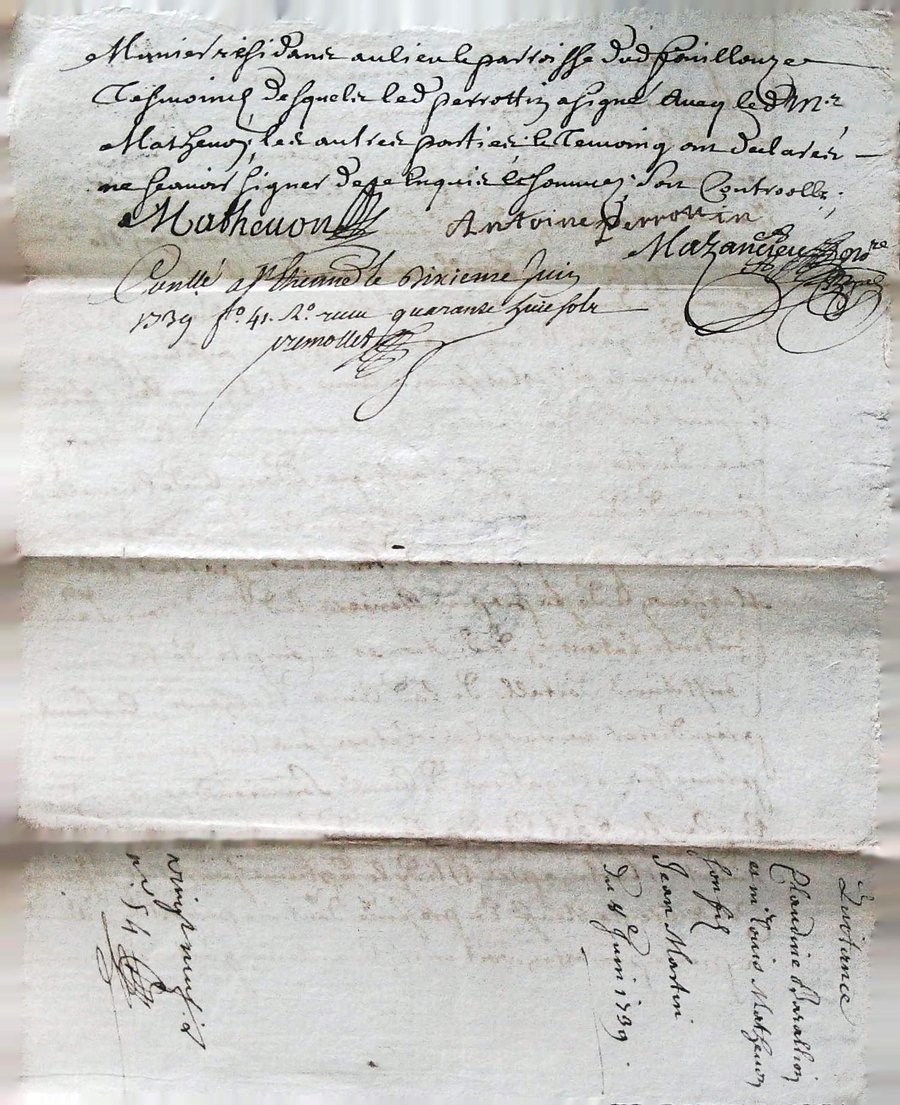 Munier residant au lieu le parroisse dud fouillouze
Tesmoins desquels led perrottin a signé avec led mr
Mathevon, les autres parties & Temoing ont declarés
ne scavoir signer de ce enquis & sommez, soit Controollé;
Mathevon Antoine Perrottin
Mazancieu no.re
Conllé a st Etienne le dixieme Juin
1739 fo. 41. Ro. receu quarante huit sols
premollet
Quittance
Claudine
et mr Louis Mathevon
son fils
Jean Martin
du 4e Juin 1739
vingt neuf
no 54